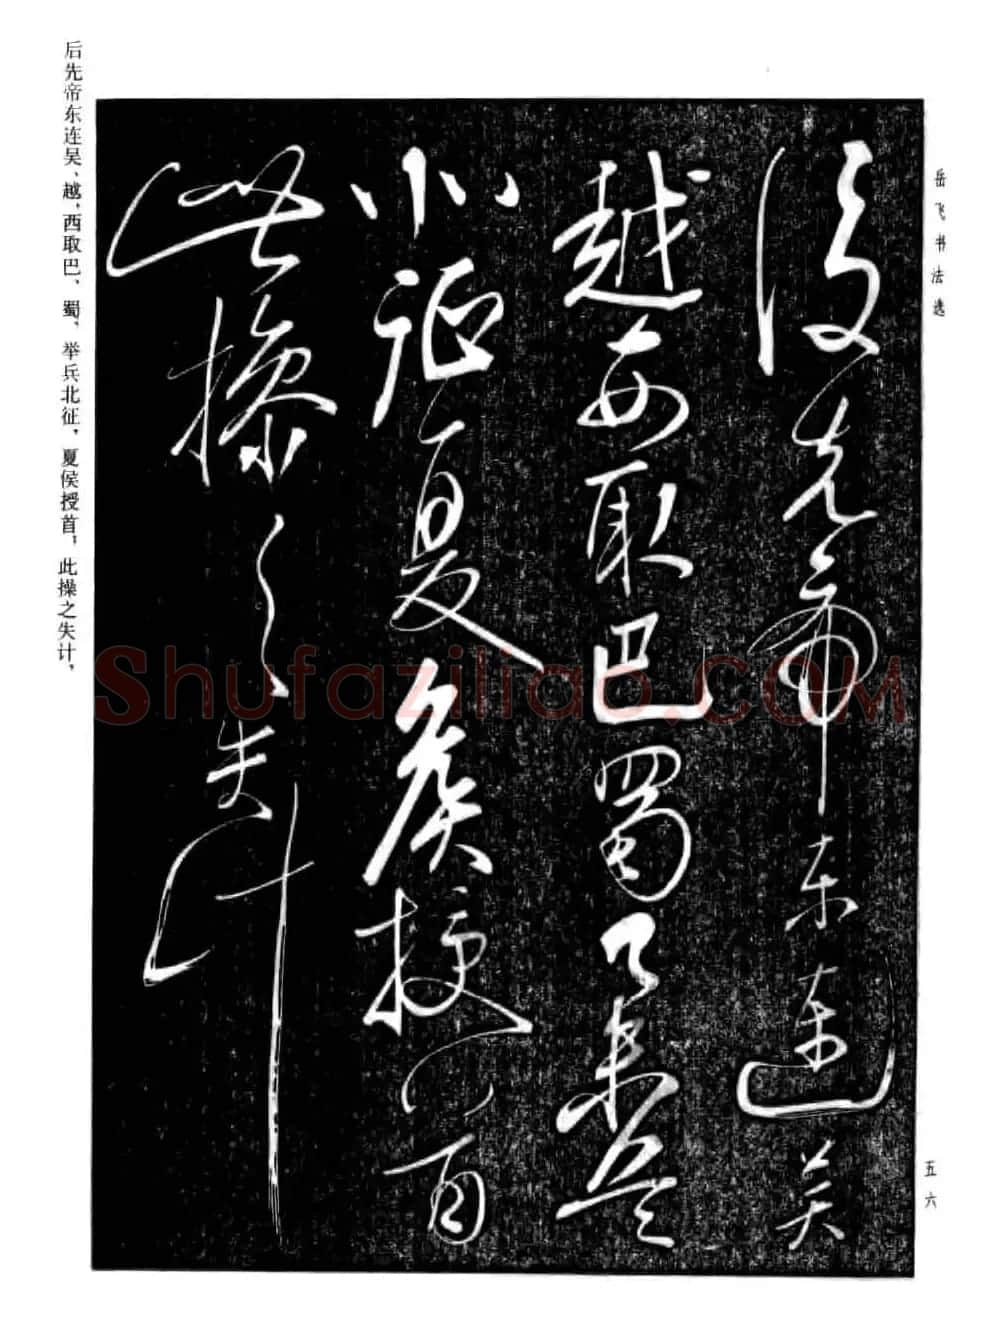 岳飞书法选
後先帝东連吴
越西取巴蜀舉兵
北征夏侯授首
此操之失计
后先帝东连吴、越，西取巴、蜀，举兵北征，夏侯授首，此操之失计，
五六
Shufaziliao.COM